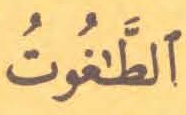 ٱلطَّٰغُوتُ